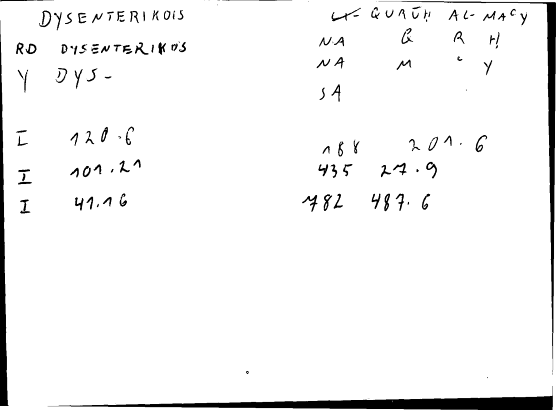 DYSENTERIKOIS
RD DYSENTERIKOS
Y DYS-
QURŪH AL-MACY
NA G R H
NA M Y
SA
I 120.6 188 201.6
I 101.21 435 27.9
I 41.16 782 487.6